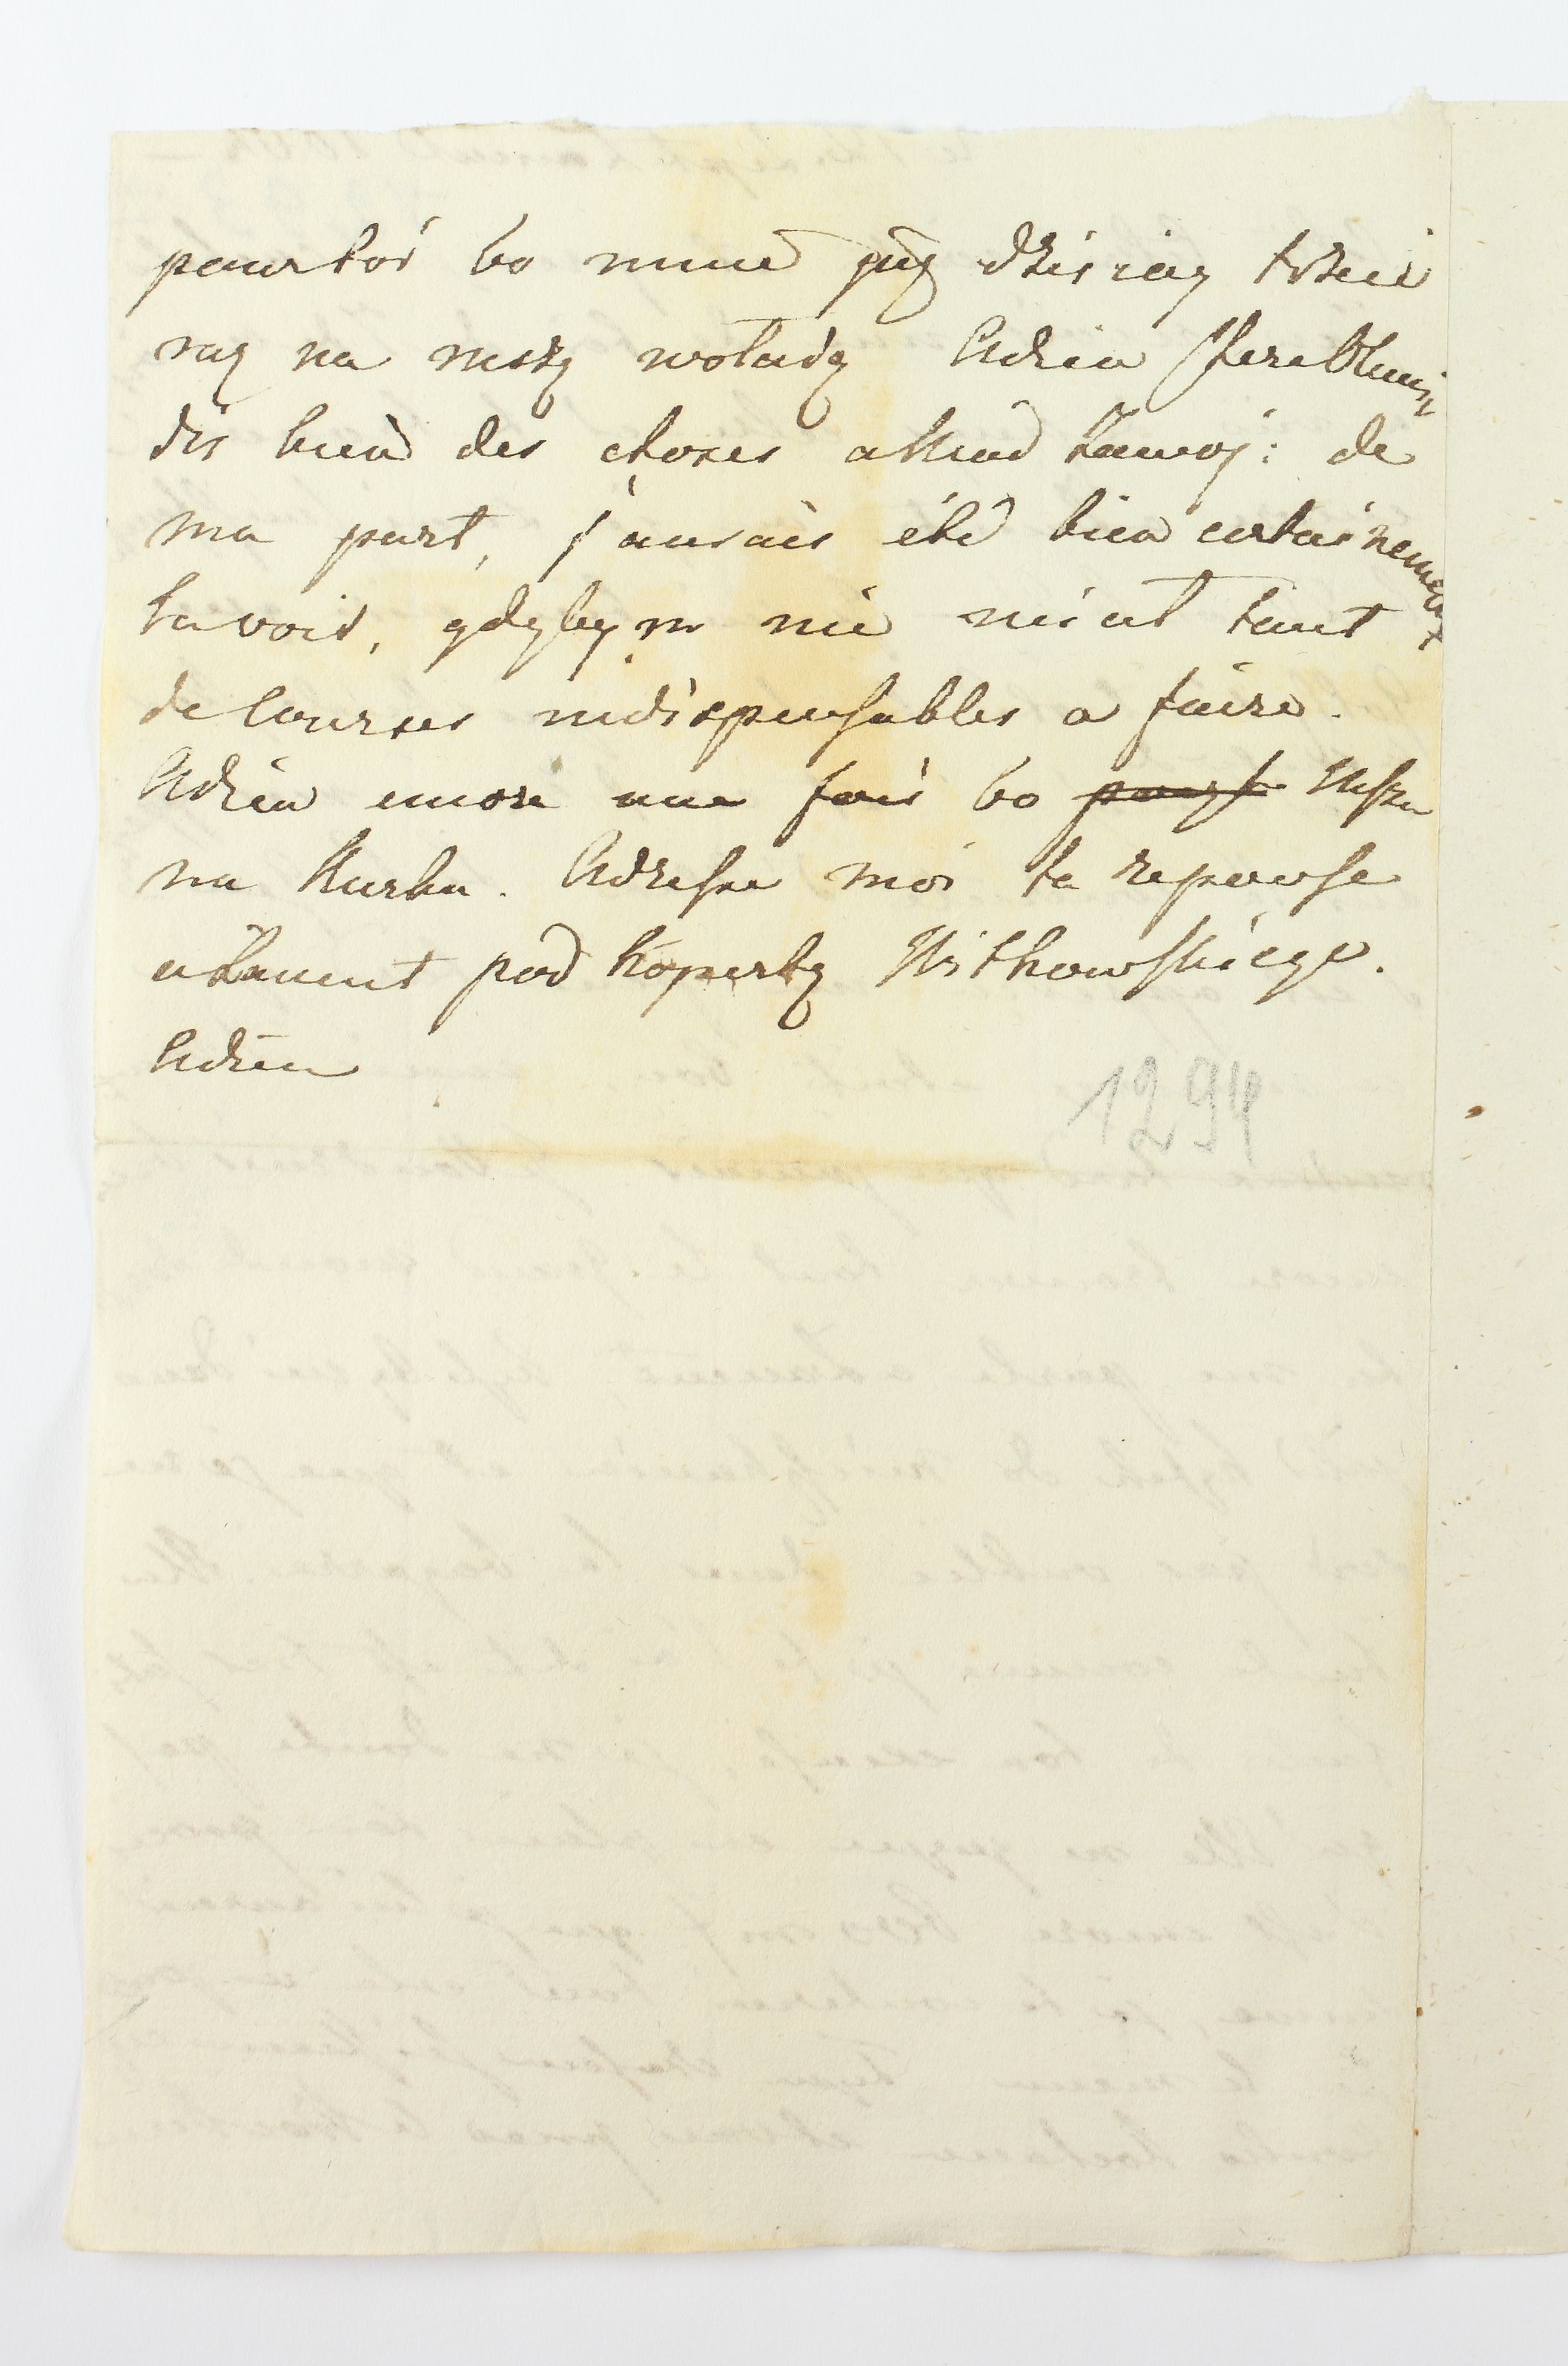 pour toi bo mnie już dzisiaj trzeci
raz na mszę wołają Adieu
dis bien des choses a Mad Zawoj: de
ma part, j'aurais été bien certainement
la voir, gdybym nie miał tant
de courses indispensables a faire.
Adieu encore une fois bo Msza
na karku. Adresse moi ta reponse
a Łancut pod kopertą Witkowskiego.
Adieu
1294